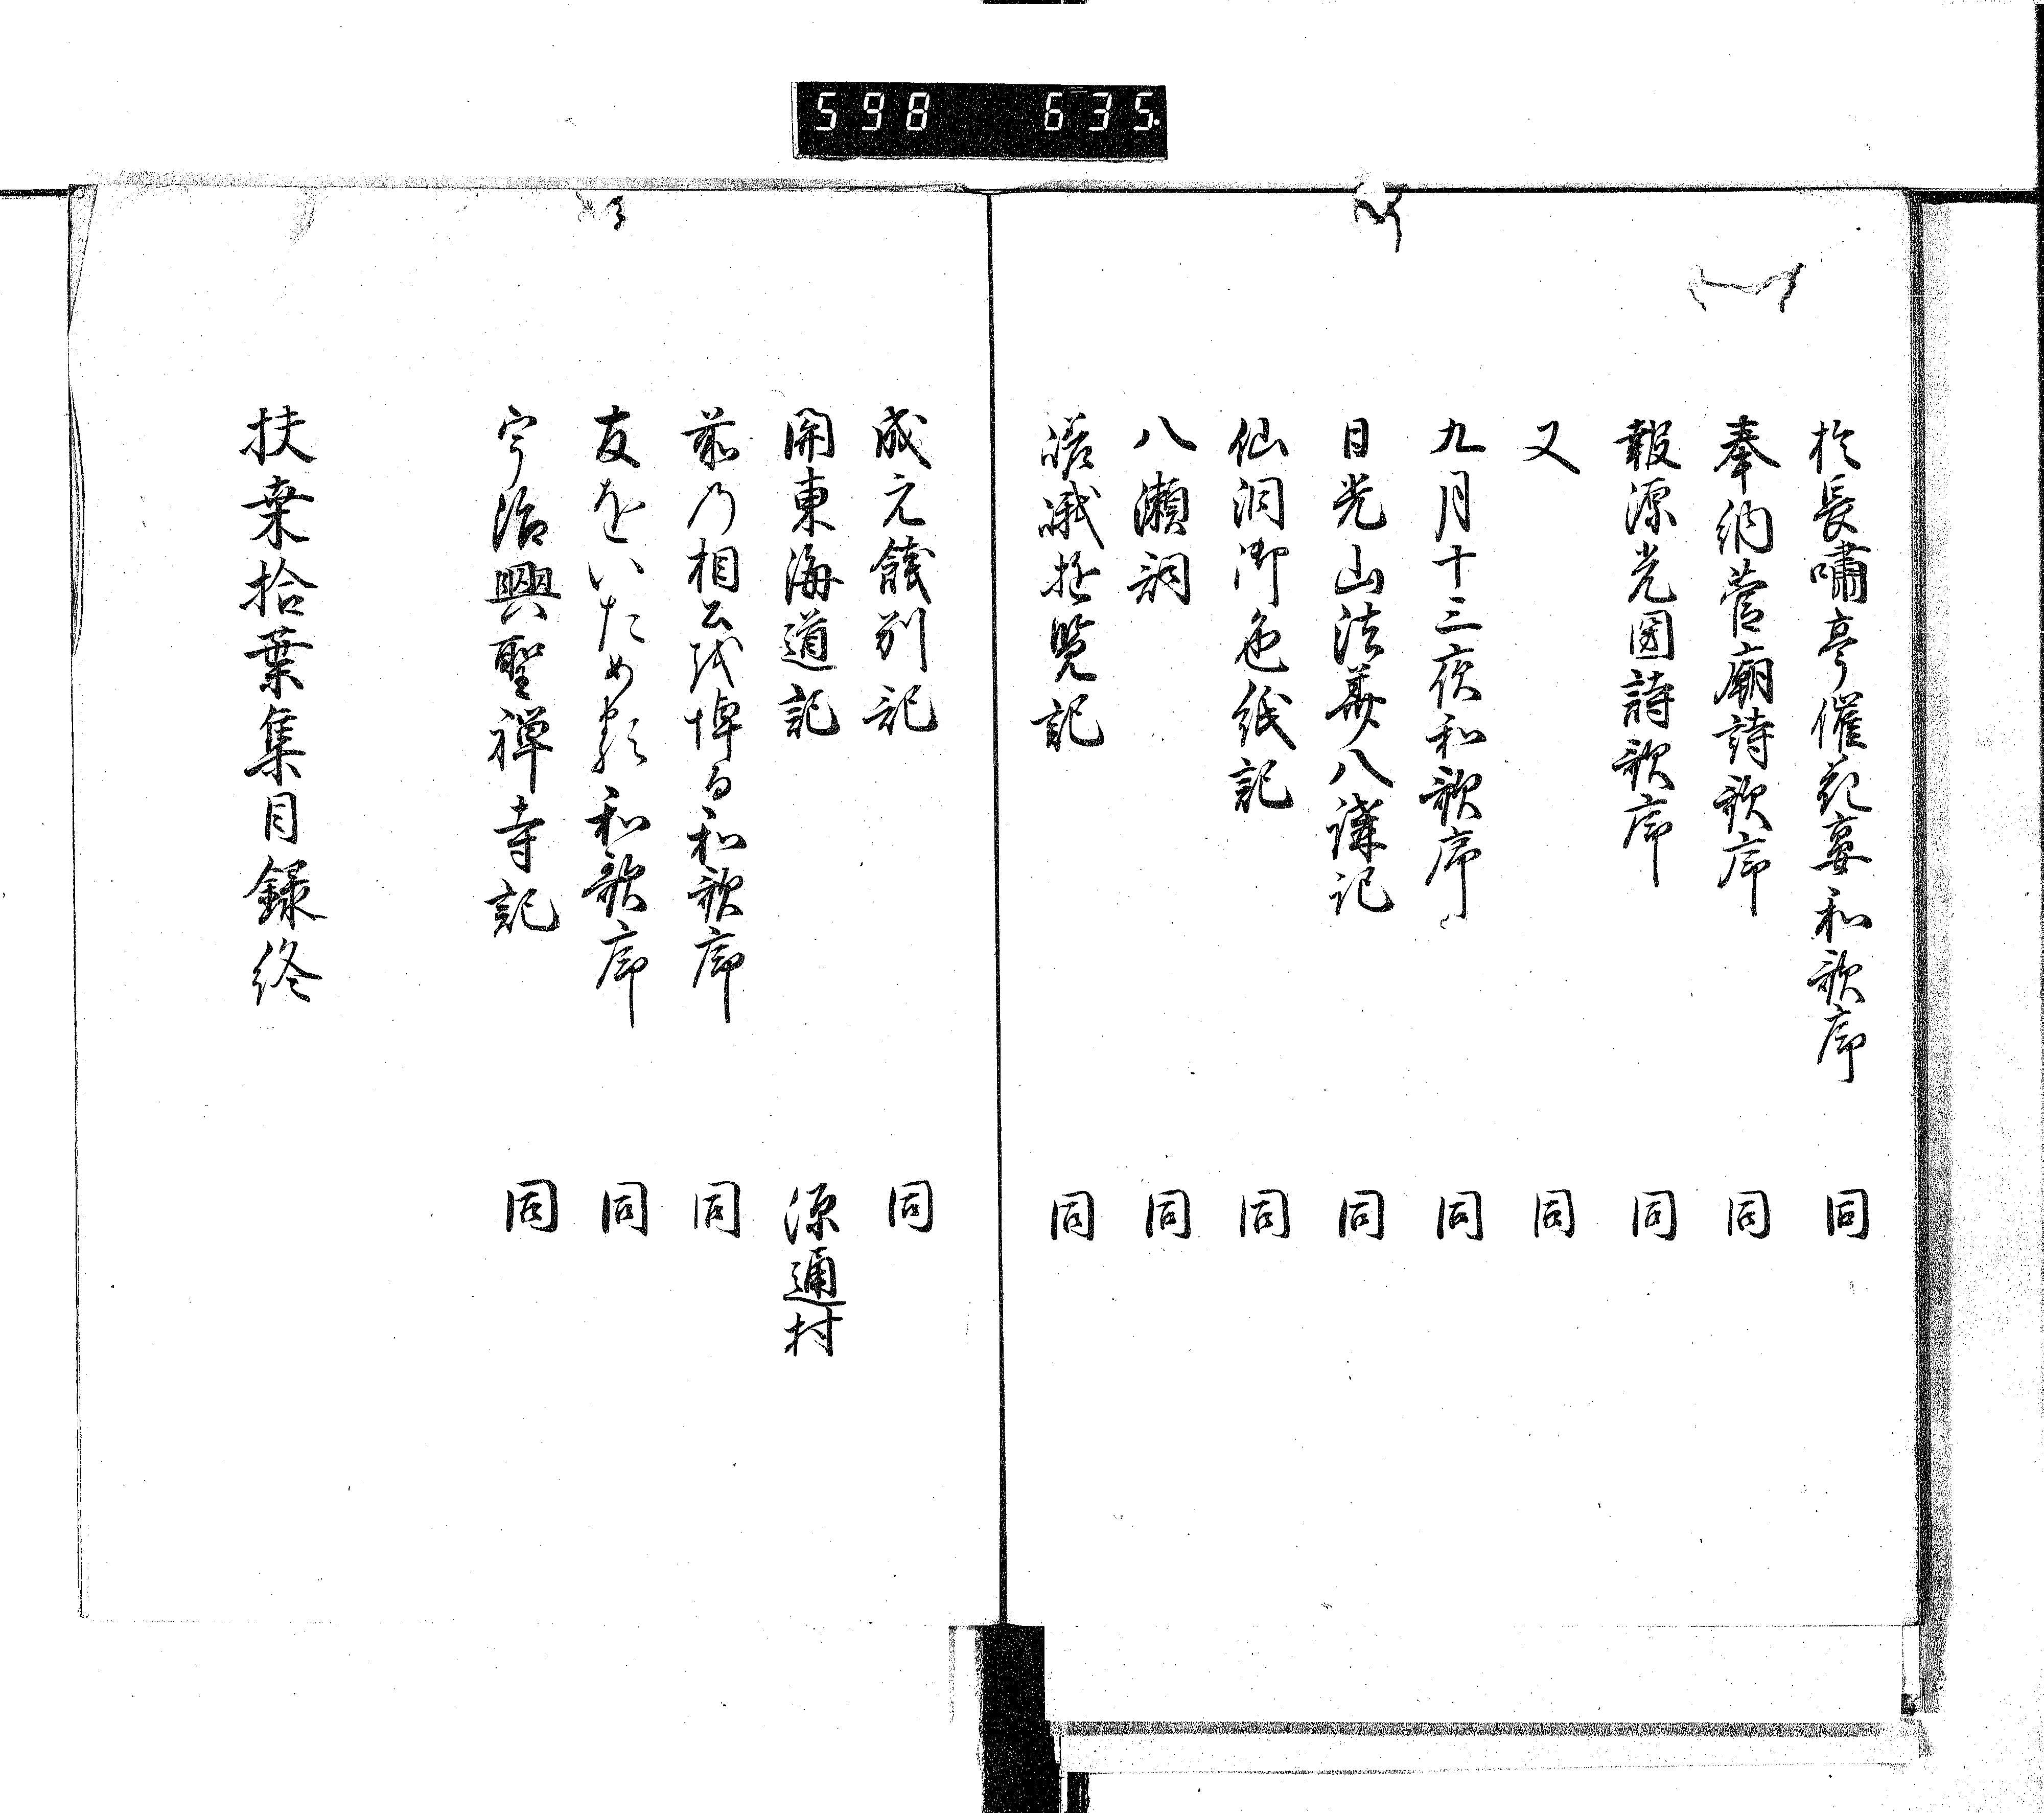 598 635
於長嘯亭催花宴和歌序 同
奉納菅廟詩歌序 同
報源光国詩歌序 同
又 同
九月十三夜和歌序 同
日光山法華八講記 同
仙洞御色紙記 同
八瀬詞 同
嵯峨遊覧記 同
成元餞別記 同
関東海道記 源通村
前の相公を悼る和歌序 同
友をいためる和歌序 同
宇治興聖禅寺記 同
扶桑拾葉集目録終